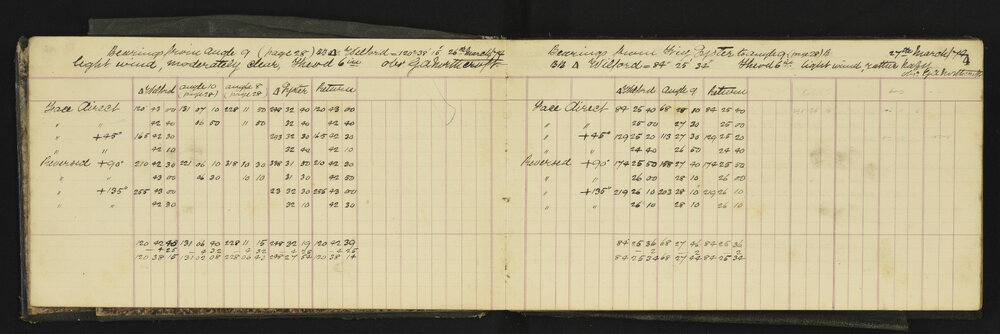 Bearings from angle 9 (page 28) BB Δ Wilford = 120° 38' 15" 26th March/74
light wind, moderately clear, Theod 6 in obr G.A. Northcroft
Δ Wilford angle 10 (page 28) angle 8 page 28 Δ Pyker Return
Face Direct 120 43 00 131 07 10 228 11 50 248 32 40 120 43 00
" " 42 40 06 50 11 00 32 40 42 40
" +45° 165 42 30 203 32 30 165 42 30
" " 42 10 32 40 42 10
Reversed +90° 210 42 30 221 06 10 318 10 30 338 31 50 210 42 30
" " 43 00 06 30 10 10 31 30 42 50
" +135° 255 43 00 23 32 30 255 43 00
" " 42 30 32 10 42 30
120 42 40 131 06 40 228 11 15 248 32 19 120 42 39
– 4 25 – 4 32 – 4 32 – 4 25 – 4 25
120 38 15 131 02 08 228 06 43 248 27 54 120 38 14
Bearings from Trig Pyker to angle 9 (page 28) B 27th March/74
4
BB Δ Wilford = 84° 25' 34" Theod 6 in light wind, rather hazy
obr G.A. Northcroft
Δ Wilford angle 9 Return
Face Direct 84 25 40 68 28 10 84 25 40
" " 25 00 27 30 25 00
" +45° 129 25 20 113 27 30 129 25 20
" " 24 40 26 50 24 40
Reversed +90° 174 25 50 158 27 40 174 25 50
" " 26 00 28 10 26 00
" +135° 219 26 10 203 28 10 219 26 10
" " 26 10 28 10 26 10
84 25 36 68 27 46 84 25 36
– 2 – 2 – 2
84 25 34 68 27 44 84 25 34